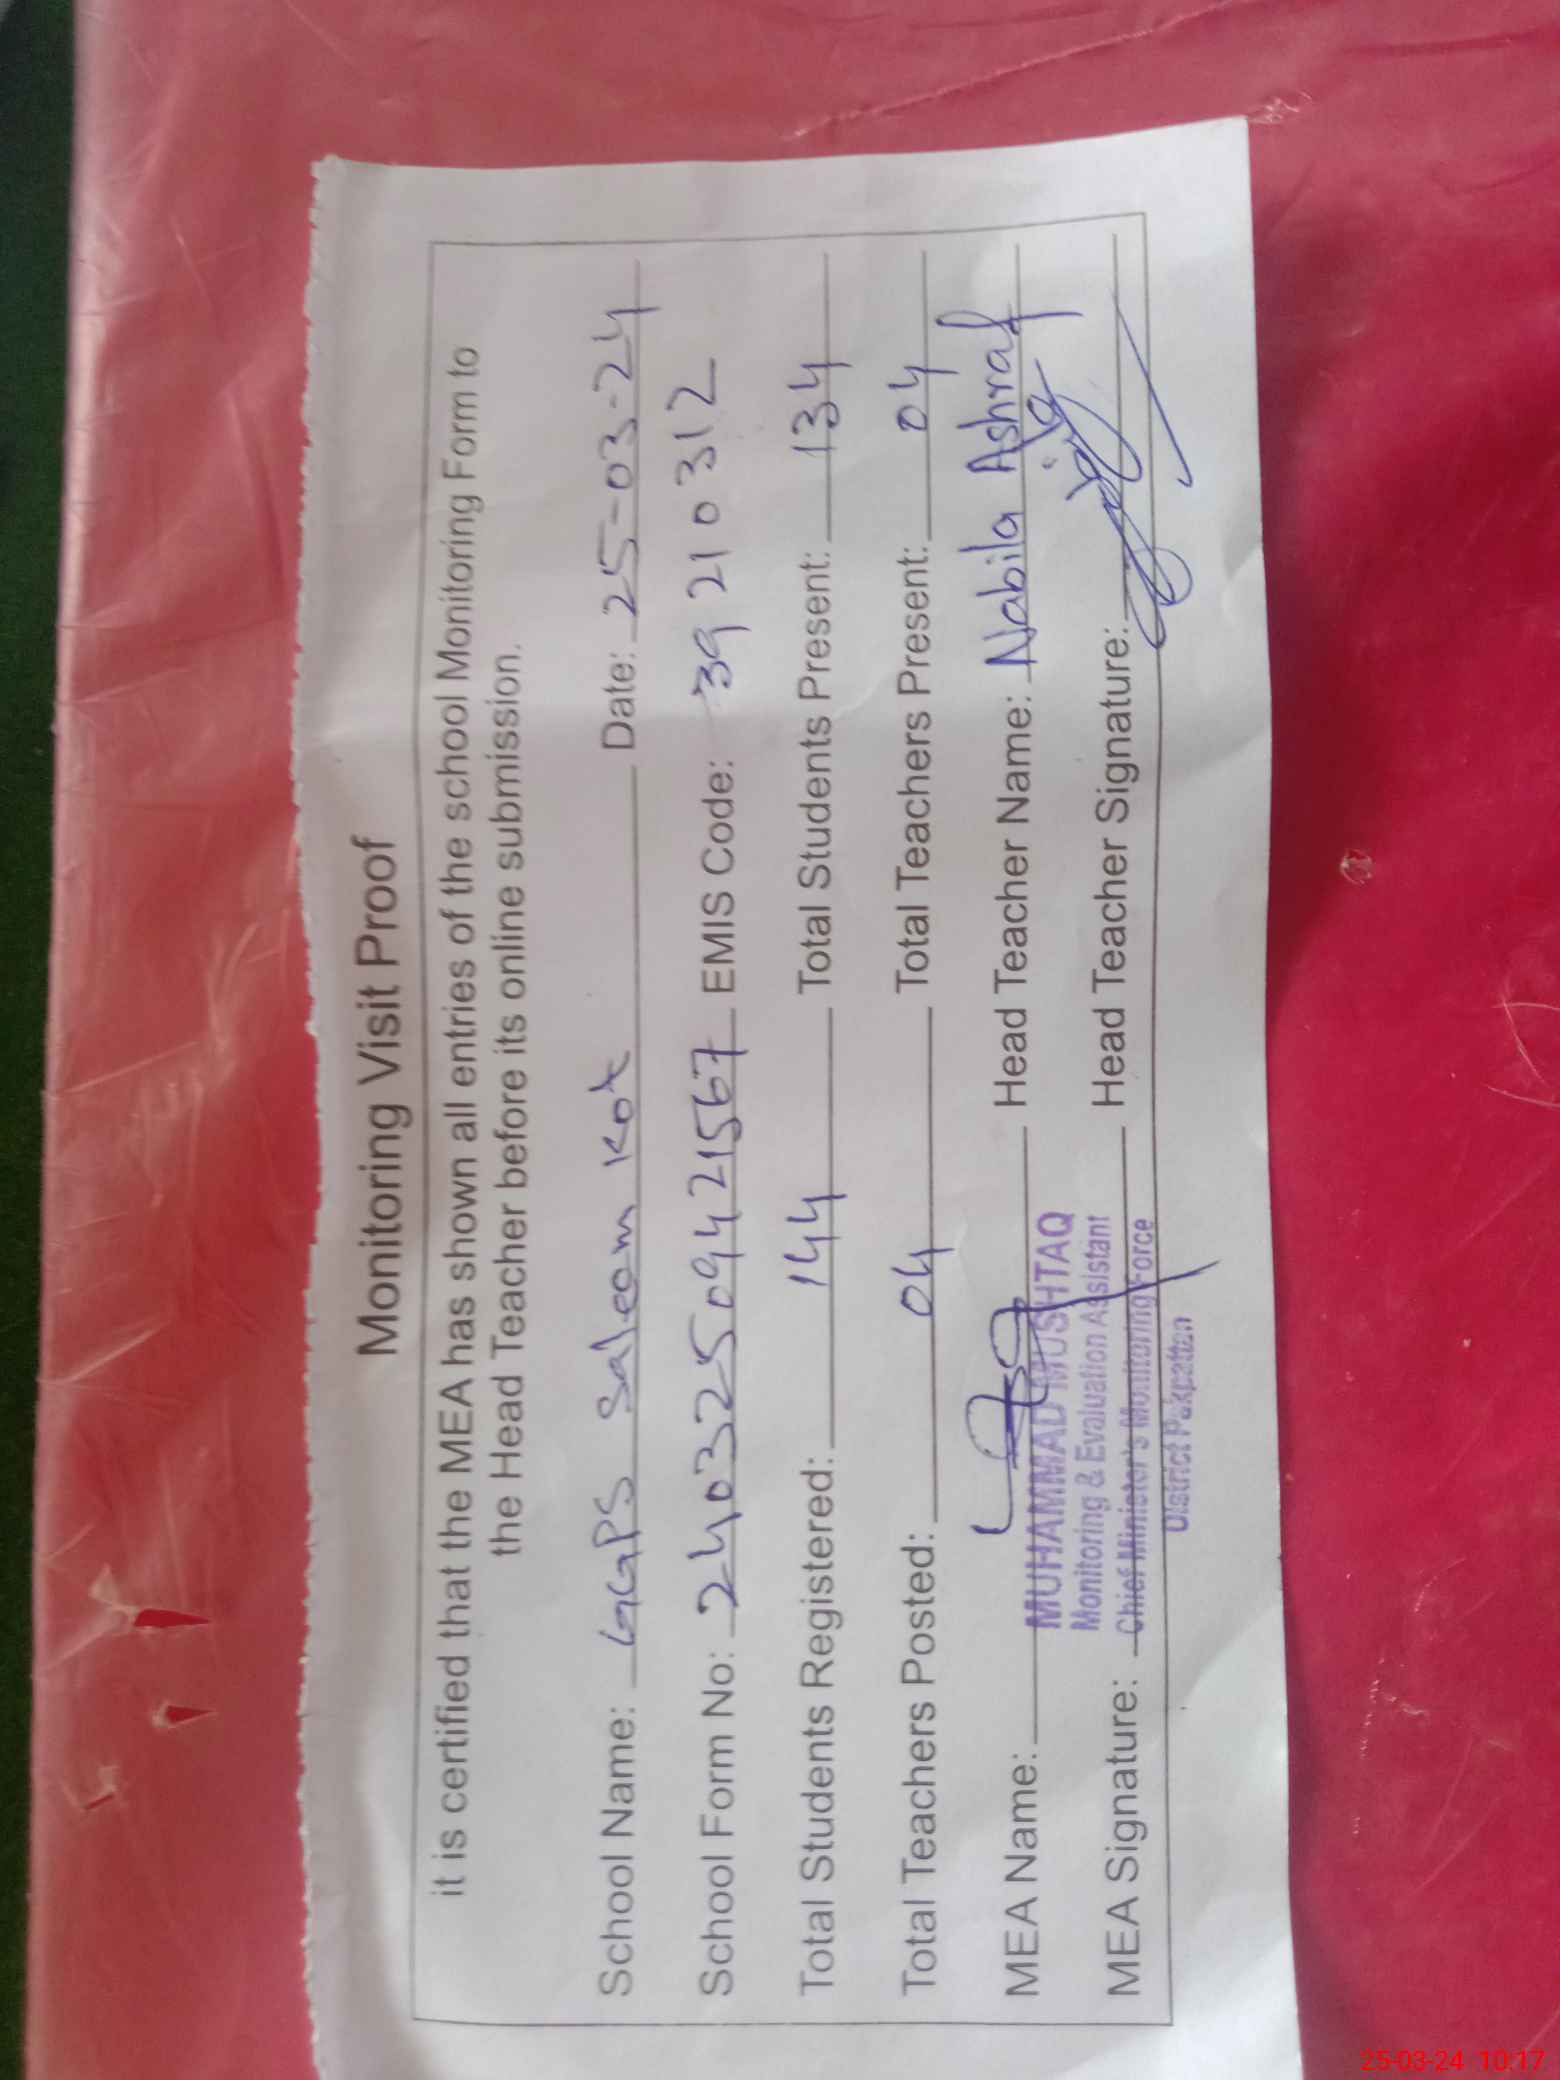 Monitoring Visit Proof
it is certified that the MEA has shown all entries of the school Monitoring Form to
the Head Teacher before its online submission.
School Name: GGPS Saleem Kot Date: 25-03-24
School Form No: 24032509421567 EMIS Code: 39210312
Total Students Registered: 144 Total Students Present: 134
Total Teachers Posted: 04 Total Teachers Present: 04
MEA Name: Head Teacher Name: Nabila Ashraf
MUHAMMAD MUSHTAQ
Monitoring & Evaluation Assistant
MEA Signature: Head Teacher Signature:
Chief Minister's Monitoring Force
District Pakpattan
25-03-24 10:17